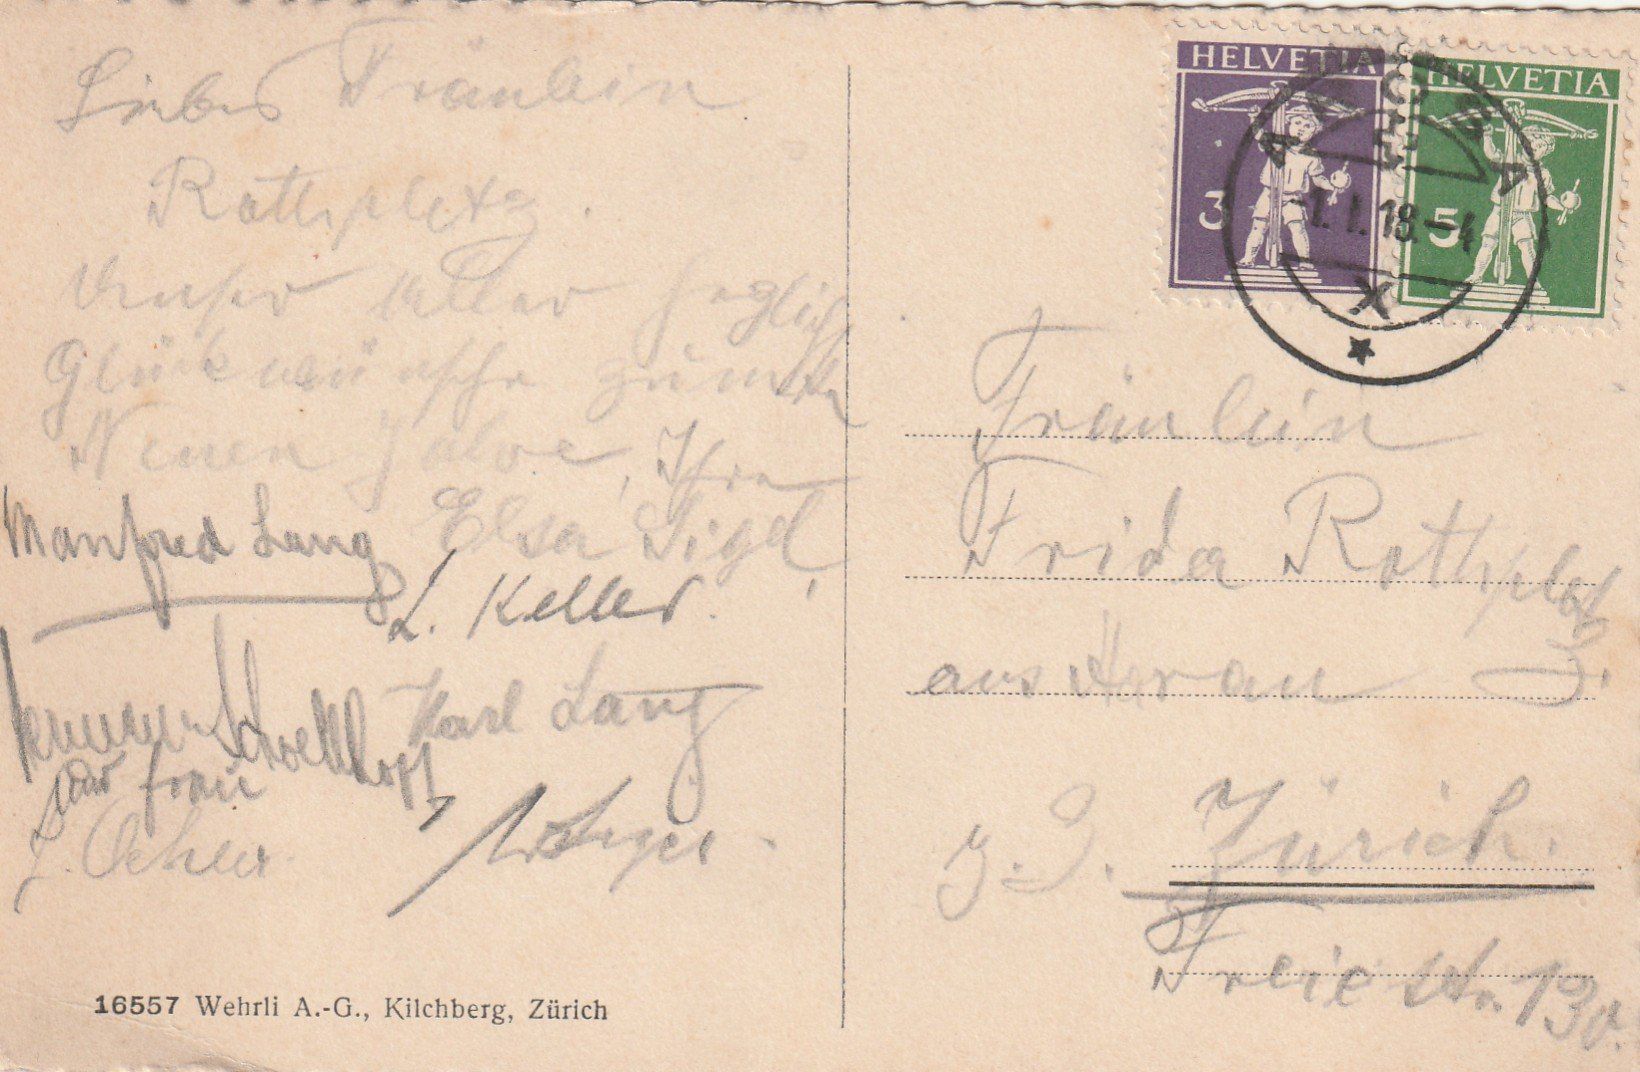 Liebes Fräulein
Rothpletz.
Unser aller
Glückwünsche zum
Neuen Jahre, Ihre
Elsa Sigel,
Manfred Lang
L. Keller.
Karl Lang
Frau
16557 Wehrli A.-G., Kilchberg, Zürich
HELVETIA
3
HELVETIA
5
1. I. 18.-4
X
Fräulein
Frida Rothpletz
aus Aarau
Z. Z. Zürich.
Freie str. 130.